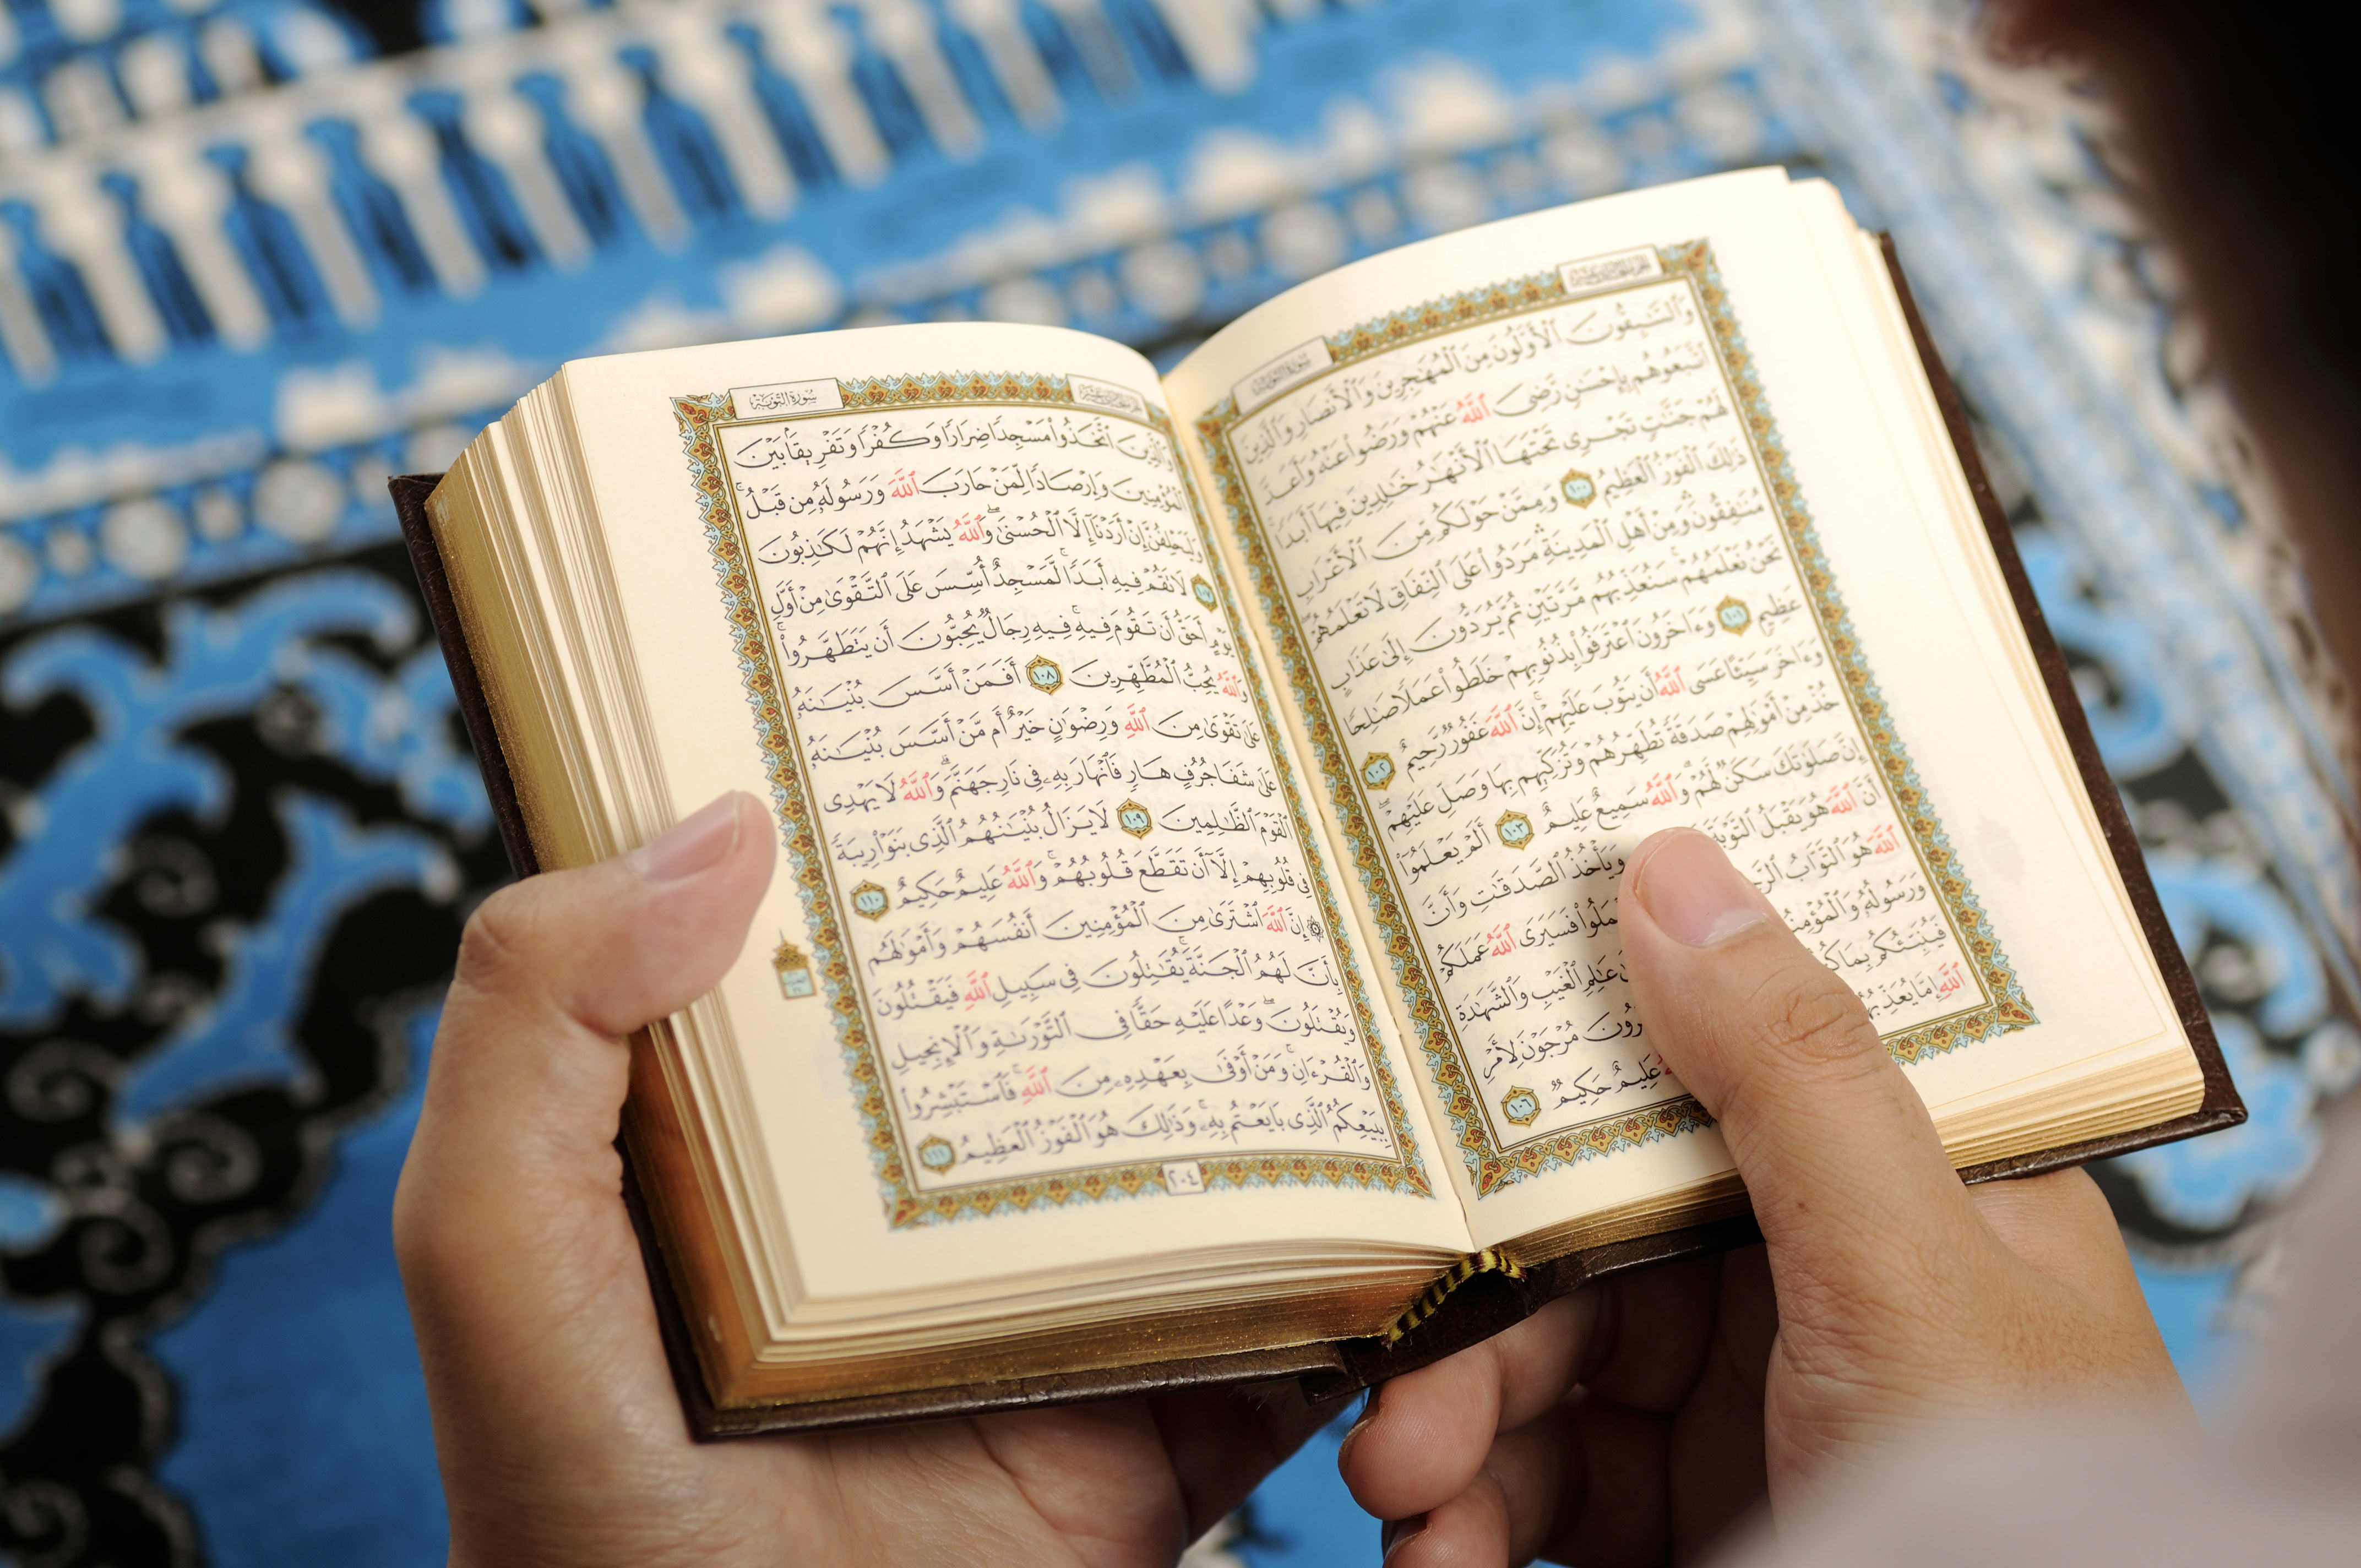 وَٱلسَّٰبِقُونَ ٱلْأَوَّلُونَ مِنَ ٱلْمُهَٰجِرِينَ وَٱلْأَنصَارِ وَٱلَّذِينَ
ٱتَّبَعُوهُم بِإِحْسَٰنٍ رَّضِىَ ٱللَّهُ عَنْهُمْ وَرَضُوا۟ عَنْهُ وَأَعَدَّ
لَهُمْ جَنَّٰتٍ تَجْرِى تَحْتَهَا ٱلْأَنْهَٰرُ خَٰلِدِينَ فِيهَآ أَبَدًا
ذَٰلِكَ ٱلْفَوْزُ ٱلْعَظِيمُ ١٠٠ وَمِمَّنْ حَوْلَكُم مِّنَ ٱلْأَعْرَابِ
مُنَٰفِقُونَ وَمِنْ أَهْلِ ٱلْمَدِينَةِ مَرَدُوا۟ عَلَى ٱلنِّفَاقِ لَا تَعْلَمُهُمْ
نَحْنُ نَعْلَمُهُمْ سَنُعَذِّبُهُم مَّرَّتَيْنِ ثُمَّ يُرَدُّونَ إِلَىٰ عَذَابٍ
عَظِيمٍ ١٠١ وَءَاخَرُونَ ٱعْتَرَفُوا۟ بِذُنُوبِهِمْ خَلَطُوا۟ عَمَلًا صَٰلِحًا
وَءَاخَرَ سَيِّئًا عَسَى ٱللَّهُ أَن يَتُوبَ عَلَيْهِمْ إِنَّ ٱللَّهَ غَفُورٌ رَّحِيمٌ ١٠٢
خُذْ مِنْ أَمْوَٰلِهِمْ صَدَقَةً تُطَهِّرُهُمْ وَتُزَكِّيهِم بِهَا وَصَلِّ عَلَيْهِمْ
إِنَّ صَلَوٰتَكَ سَكَنٌ لَّهُمْ وَٱللَّهُ سَمِيعٌ عَلِيمٌ ١٠٣ أَلَمْ يَعْلَمُوٓا۟
أَنَّ ٱللَّهَ هُوَ يَقْبَلُ ٱلتَّوْبَةَ وَيَأْخُذُ ٱلصَّدَقَٰتِ وَأَنَّ
ٱللَّهَ هُوَ ٱلتَّوَّابُ فَسَيَرَى ٱللَّهُ عَمَلَكُمْ
وَرَسُولُهُۥ عَٰلِمِ ٱلْغَيْبِ وَٱلشَّهَٰدَةِ
فَيُنَبِّئُكُم بِمَا مُرْجَوْنَ لِأَمْرِ
ٱللَّهِ إِمَّا عَلِيمٌ حَكِيمٌ ١٠٦
سُورَةُ التَّوْبَةِ
وَٱلَّذِينَ ٱتَّخَذُوا۟ مَسْجِدًا ضِرَارًا وَكُفْرًا وَتَفْرِيقًۢا بَيْنَ
ٱلْمُؤْمِنِينَ وَإِرْصَادًا لِّمَنْ حَارَبَ ٱللَّهَ وَرَسُولَهُۥ مِن قَبْلُ ۚ
وَلَيَحْلِفُنَّ إِنْ أَرَدْنَآ إِلَّا ٱلْحُسْنَىٰ ۖ وَٱللَّهُ يَشْهَدُ إِنَّهُمْ لَكَٰذِبُونَ
١٠٧ لَا تَقُمْ فِيهِ أَبَدًا ۚ لَّمَسْجِدٌ أُسِّسَ عَلَى ٱلتَّقْوَىٰ مِنْ أَوَّلِ
يَوْمٍ أَحَقُّ أَن تَقُومَ فِيهِ ۚ فِيهِ رِجَالٌ يُحِبُّونَ أَن يَتَطَهَّرُوا۟ ۚ
وَٱللَّهُ يُحِبُّ ٱلْمُطَّهِّرِينَ ١٠٨ أَفَمَنْ أَسَّسَ بُنْيَٰنَهُۥ
عَلَىٰ تَقْوَىٰ مِنَ ٱللَّهِ وَرِضْوَٰنٍ خَيْرٌ أَم مَّنْ أَسَّسَ بُنْيَٰنَهُۥ
عَلَىٰ شَفَا جُرُفٍ هَارٍ فَٱنْهَارَ بِهِۦ فِى نَارِ جَهَنَّمَ ۗ وَٱللَّهُ لَا يَهْدِى
ٱلْقَوْمَ ٱلظَّٰلِمِينَ ١٠٩ لَا يَزَالُ بُنْيَٰنُهُمُ ٱلَّذِى بَنَوْا۟ رِيبَةً
فِى قُلُوبِهِمْ إِلَّآ أَن تَقَطَّعَ قُلُوبُهُمْ ۗ وَٱللَّهُ عَلِيمٌ حَكِيمٌ ١١٠
۞ إِنَّ ٱللَّهَ ٱشْتَرَىٰ مِنَ ٱلْمُؤْمِنِينَ أَنفُسَهُمْ وَأَمْوَٰلَهُم
بِأَنَّ لَهُمُ ٱلْجَنَّةَ ۚ يُقَٰتِلُونَ فِى سَبِيلِ ٱللَّهِ فَيَقْتُلُونَ
وَيُقْتَلُونَ ۖ وَعْدًا عَلَيْهِ حَقًّا فِى ٱلتَّوْرَىٰةِ وَٱلْإِنجِيلِ
وَٱلْقُرْءَانِ ۚ وَمَنْ أَوْفَىٰ بِعَهْدِهِۦ مِنَ ٱللَّهِ ۚ فَٱسْتَبْشِرُوا۟
بِبَيْعِكُمُ ٱلَّذِى بَايَعْتُم بِهِۦ ۚ وَذَٰلِكَ هُوَ ٱلْفَوْزُ ٱلْعَظِيمُ ١١١
٢٠٤